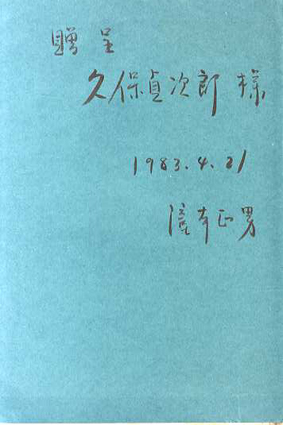 贈呈
久保貞次郎 様
1983.4.21
滝本正男